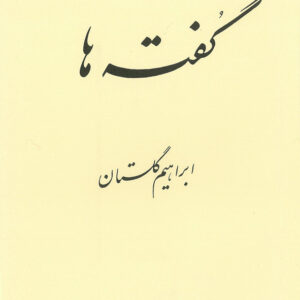 گُفته ها
ابراهیم گلستان